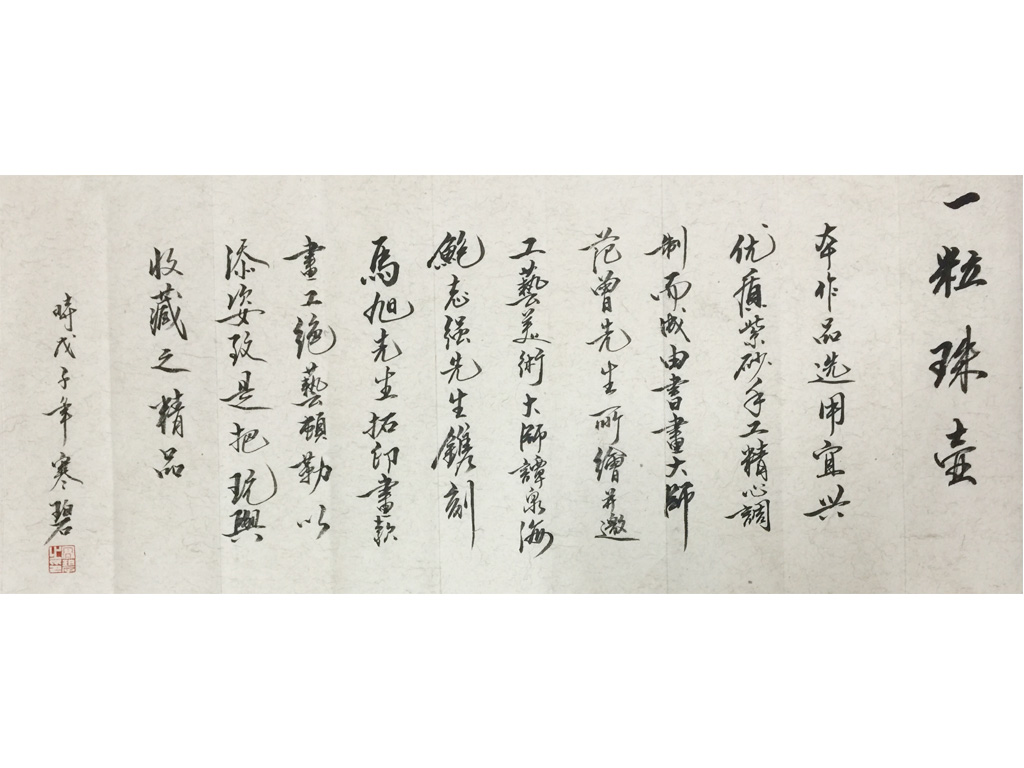 一粒珠壶
本作品选用宜兴
优质紫砂手工精心調
制而成由書畫大師
范曾先生所繪并邀
工藝美術大師譚泉海
鮑志强先生鐫刻
馬旭先生拓印畫款
畫工绝藝頓勒以
添姿致是把玩與
收藏之精品
時戊子年寒碧